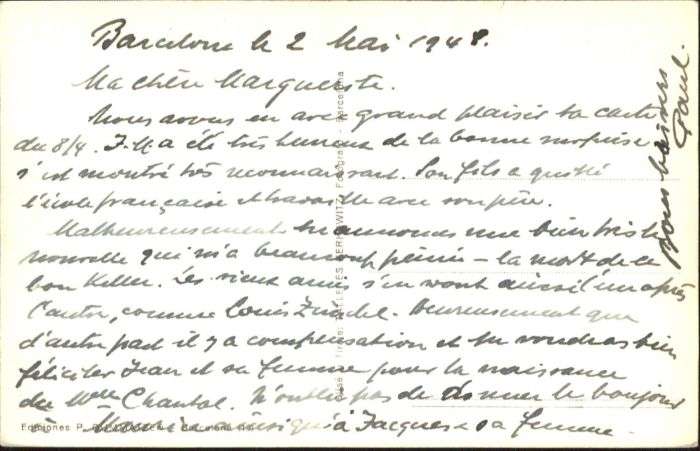 Barcelone le 2 Mai 1948.
Ma chère Marguerite.
Nous avons eu avec grand plaisir ta carte
du 8/4. a été très heureux de la bonne surprise
s'est montré très reconnaissant. Son fils a quitté
l'école française et travaille avec son père.
Malheureusement tu annonces une bien triste
nouvelle qui m'a beaucoup peiné - la mort de ce
bon Keller. Les vieux amis s'en vont ainsi l'un après
l'autre, comme Louis Heureusement que
d'autre part il y a compensation et tu voudras bien
féliciter Jean et sa femme pour la naissance
de Mlle Chantal. N'oublie pas de donner le bonjour
à ainsi qu'à Jacques et sa femme.
Bons baisers
Paul.
Ediciones P.
Barcelona